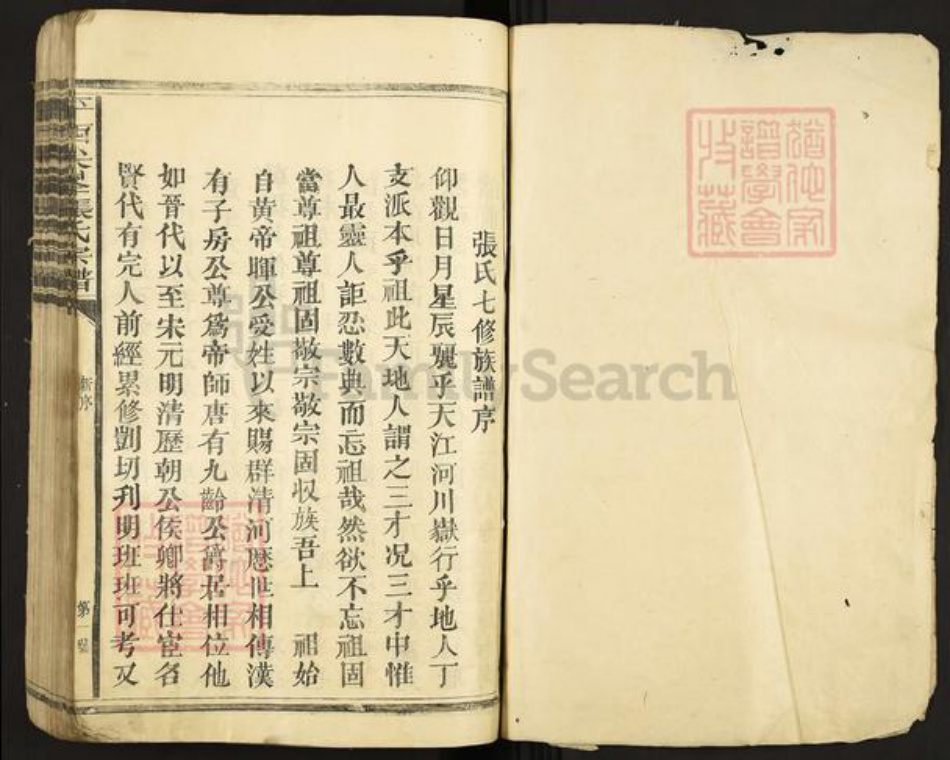 張氏七修族譜序
仰觀日月星辰麗乎天江河川嶽行乎地人丁
支派本乎祖此天地人謂之三才况三才中惟
人最靈人詎忍數典而忘祖哉然欲不忘祖固
當尊祖尊祖固敬宗敬宗固収族吾上 祖始
自黄帝暉公受姓以來賜群清河歷世相傳漢
有子房公尊爲帝師唐有九齡公爵居相位他
如晉代以至宋元明清歷朝公侯卿將仕宦名
賢代有完人前經累修剴切刋明班班可考又
張氏宗譜
新序
第一
譜學會
收藏
FamilySearch